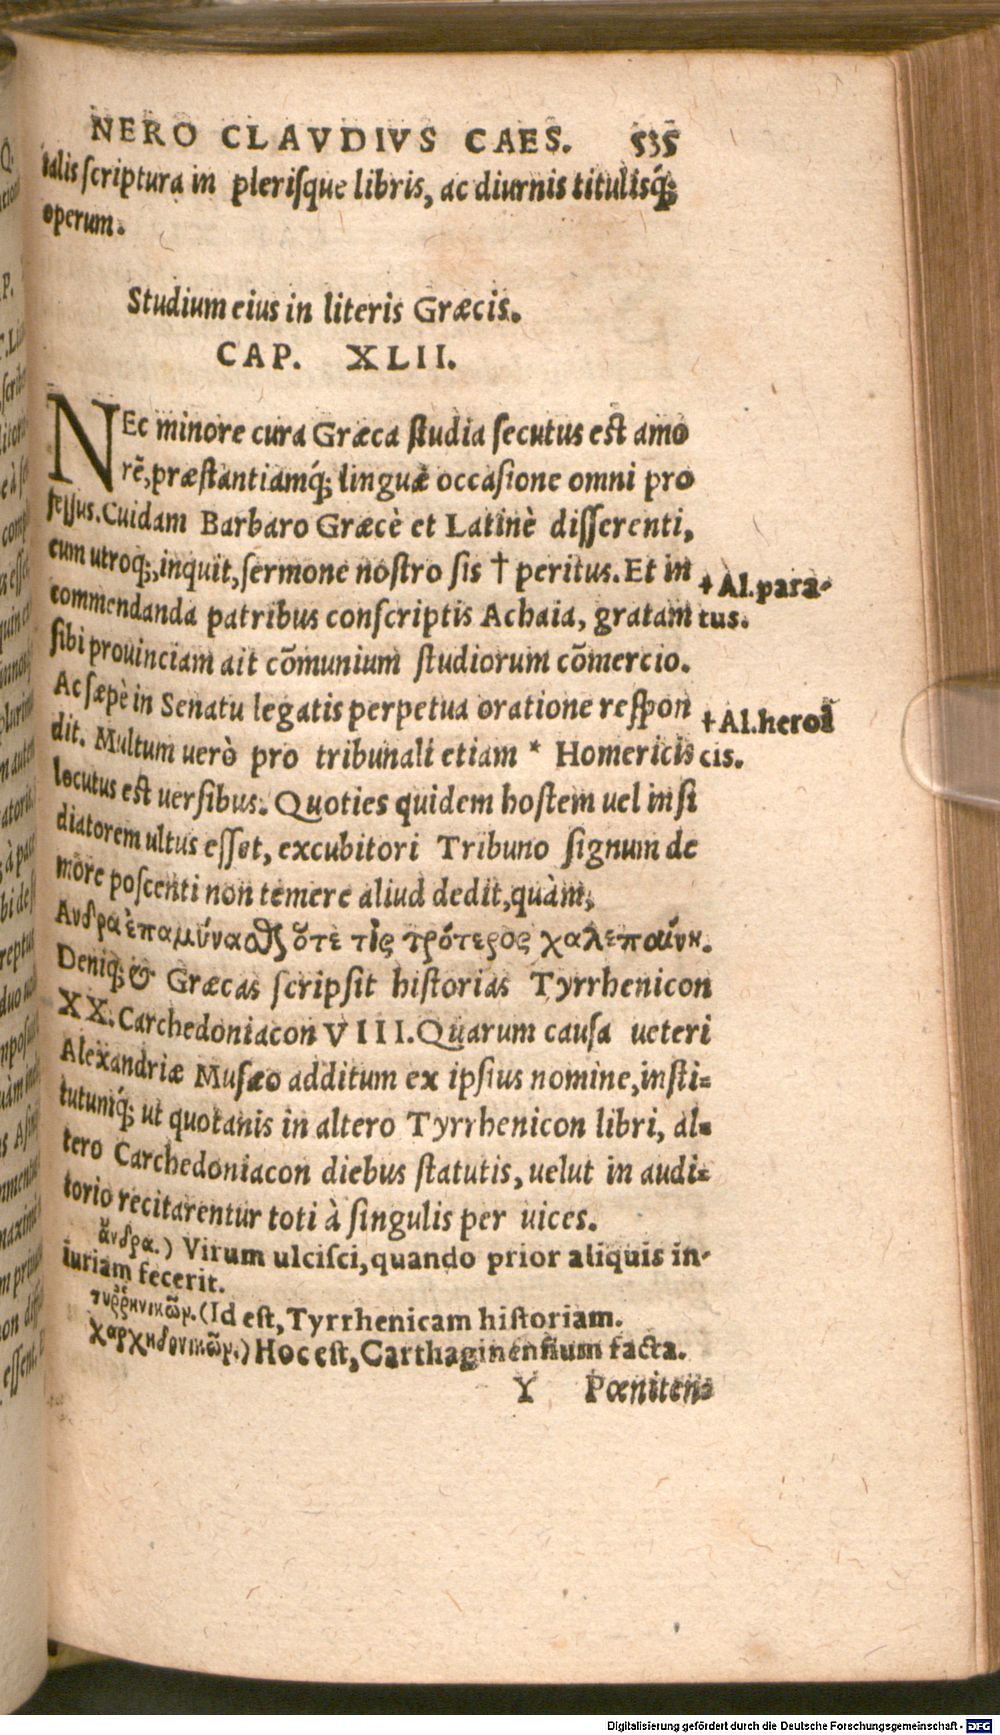 NERO CLAVDIVS CAES. 535
talis scriptura in plerisque libris, ac diurnis titulisq́;
operum.
Studium eius in literis Græcis.
CAP. XLII.
NEc minore cura Græca studia secutus est amo
rẽ, præstantiamq́; linguæ occasione omni pro
fessus. Cuidam Barbaro Græcè et Latinè disserenti,
cum utroq;, inquit, sermone nostro sis † peritus. Et in
commendanda patribus conscriptis Achaia, gratam
sibi prouinciam ait cõmunium studiorum cõmercio.
Ac sæpè in Senatu legatis perpetua oratione respon
dit. Multum uerò pro tribunali etiam * Homericis
locutus est uersibus. Quoties quidem hostem uel insi
diatorem ultus esset, excubitori Tribuno signum de
more poscenti non temere aliud dedit, quàm,
Ανδρα ἐπαμύναϑ ὅτε τὶς τρότερος χαλεπαίνη.
Deniq; & Græcas scripsit historias Tyrrhenicon
XX. Carchedoniacon VIII. Quarum causa ueteri
Alexandriæ Musæo additum ex ipsius nomine, insti=
tutumq́; ut quotanis in altero Tyrrhenicon libri, al=
tero Carchedoniacon diebus statutis, uelut in audi=
torio recitarentur toti à singulis per uices.
ἄνδρα.) Virum ulcisci, quando prior aliquis in-
iuriam fecerit.
τυῤῥηνικῶν. (Id est, Tyrrhenicam historiam.
χαρχηδονικῶν.) Hoc est, Carthaginensium facta.
Y Pœniten=
† Al. para-
tus.
† Al. heroi
cis.
Digitalisierung gefördert durch die Deutsche Forschungsgemeinschaft - DFG